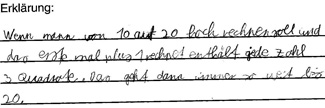 Erklärung:
Wenn mann von 10 auf 20 hoch rechnen soll und
das erste mal plus 1 rechnet enthält jede zahl
3 Quadrate. Dan geht dann immer so weit bis
20.